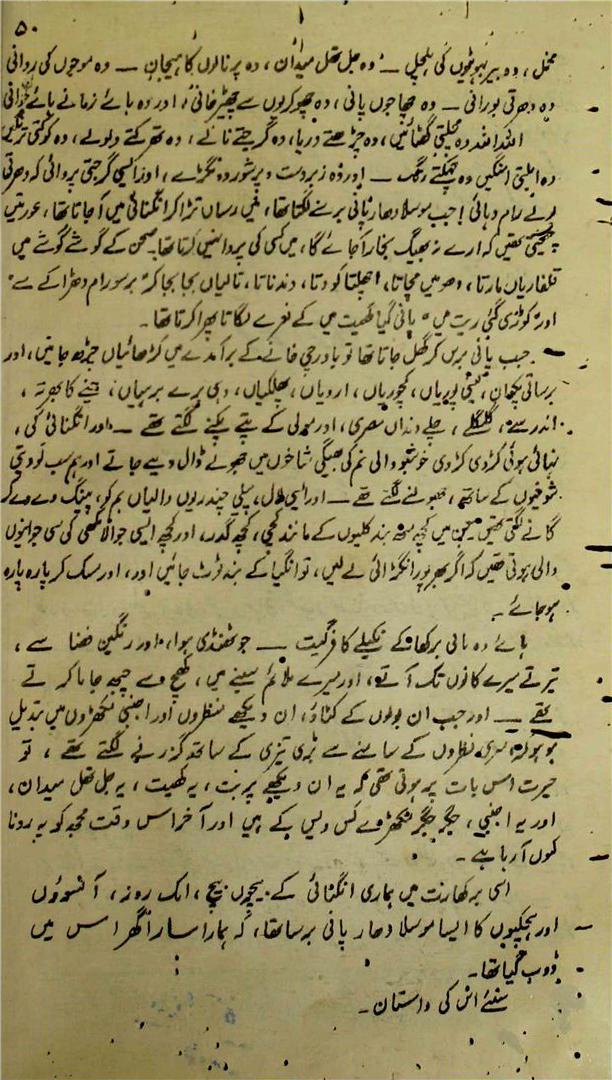 ۵۰
مخمل، وہ بیر بہوٹیوں کی ہلچل — وہ جل تھل میدان، وہ پرنالوں کا ہیجان — وہ موجوں کی روانی
وہ دھرتی بورانی — وہ چھاجوں پانی، وہ چھوکریوں سے چھیڑ خانی، اور وہ ہائے زمانے ہائے جوانی
اللہ اللہ وہ مچلتی گھٹائیں، وہ چڑھتے دریا، وہ گرجتے نالے، وہ تھرکتے ولولے، وہ کوکتی ترنگیں
وہ ابلتی امنگیں وہ چھلکتے رنگ — اور وہ زبردست و پرشور دونگڑے، اور ایسی گرجتی پروائی کہ دھرتی
بولے رام دہائی! جب موسلا دھار پانی برسنے لگتا تھا، میں رساں تڑا کر انگنائی میں آ جاتا تھا، عورتیں
چیختی تھیں کہ ارے نہ بھیگ بخار آ جائے گا، میں کسی کی پروا نہیں کرتا تھا۔ صحن کے گوشے گوشے میں
قلقاریاں مارتا، دھومیں مچاتا، اچھلتا کودتا، دندناتا، تالیاں بجا بجا کر "برسو رام دھڑاکے سے"
اور "کوڑی گئی ریت میں" پانی گیا کھیت میں کے نعرے لگاتا پھرا کرتا تھا۔
جب پانی برس کر کھل جاتا تھا تو باورچی خانے کے برآمدے میں کڑھائیاں چڑھ جاتیں، اور
برساتی پکوان، یعنی پوریاں، کچوریاں، ارویاں، پھلکیاں، دہی بڑے بریاں، چنے کا بھرتہ،
اندرسے، گلگلے، چلے دنداں مصری، اور مولی کے پتے پکنے لگتے تھے — اور انگنائی کی،
نہائی ہوئی کڑوی کڑوی خوشبو والی نم کی بھیگی شاخوں میں جھولے ڈال دیے جاتے اور ہم سب
شوخیوں کے ساتھ، جھولنے لگتے تھے — اور ایسی لال، پیلی چندریوں والیاں ہم کو، پینگ دے دے کر
گانے لگتی تھیں جن میں کچھ منہ بند کلیوں کے مانند کچی، کچھ گدر، اور کچھ ایسی جوالا مکھی کی سی جوانیوں
والی ہوتی تھیں کہ اگر بھرپور انگڑائی لے لیں، تو انگیا کے بند ٹوٹ جائیں اور، اور مسک کر پارہ پارہ
ہو جائے۔
ہائے وہ بانی برکھا کے نکیلے کافر گیت — جو ٹھنڈی ہوا، اور رنگین فضا سے،
تیرتے میرے کانوں تک آتے، اور میرے ملائم سینے میں، کھچ دے چبھ جایا کرتے
تھے — اور جب ان بولوں کے کٹاؤ، ان دیکھے منظروں اور اجنبی مکھڑوں میں تبدیل
ہو ہو کر، میری نظروں کے سامنے سے بڑی تیزی کے ساتھ گزرنے لگتے تھے، تو
حیرت اس بات پر ہوتی تھی کہ یہ ان دیکھے پربت، یہ کھیت، یہ جل تھل میدان،
اور یہ اجنبی، جگر جگر مکھڑے کس دیس کے ہیں اور آخر اس وقت مجھ کو یہ رونا
کیوں آ رہا ہے۔
اسی برکھا رت میں ہماری انگنائی کے بیچوں بیچ، ایک روز، آنسوؤں
اور ہچکیوں کا ایسا موسلا دھار پانی برسا تھا، کہ ہمارا سارا گھر اس میں
ڈوب گیا تھا۔
سنئے اس کی داستان۔